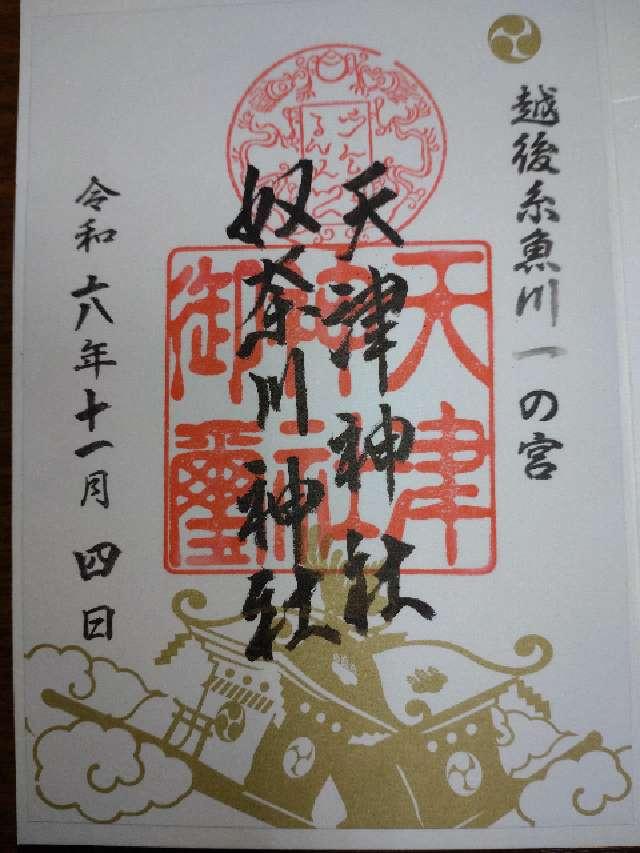 越後糸魚川一の宮
天津神社
奴奈川神社
天津
神社
御璽
令和六年十一月四日